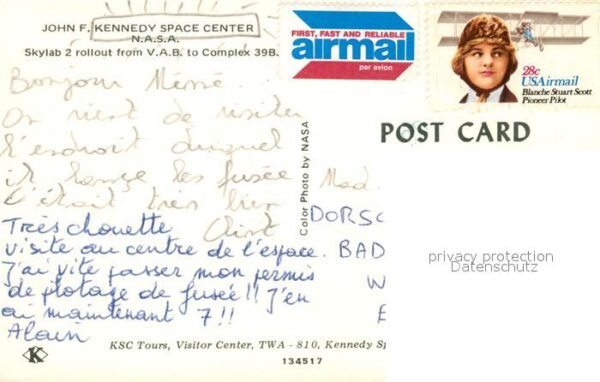 JOHN F. KENNEDY SPACE CENTER
N.A.S.A.
Skylab 2 rollout from V.A.B. to Complex 39B.
FIRST, FAST AND RELIABLE
airmail
par avion
28c
USAirmail
Blanche Stuart Scott
Pioneer Pilot
POST CARD
Bonjour Mémé.
On vient de visiter
l'endroit duquel
il lance les fusée
C'était très bien
Très chouette
visite au centre de l'espace.
J'ai vite passer mon permis
de pilotage de fusée!! J'en
ai maintenant 7!!
Alain
Color Photo by NASA
Mad.
DORSC
BAD
W
E
privacy protection
Datenschutz
K
KSC Tours, Visitor Center, TWA - 810, Kennedy Sp
134517